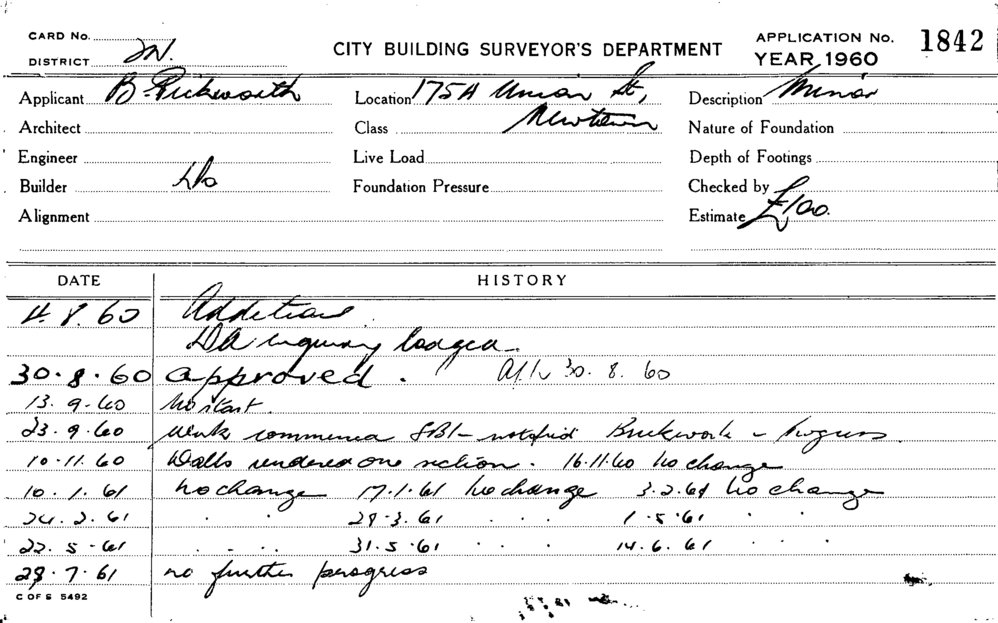 CARD No.
DISTRICT
CITY BUILDING SURVEYOR'S DEPARTMENT
APPLICATION No. 1842
YEAR 1960
Applicant B. Rickworth
Location 175A Union St,
Newtown
Description Minor
Architect
Class
Nature of Foundation
Engineer
Live Load
Depth of Footings
Builder Do
Foundation Pressure
Checked by
Alignment
Estimate £100.
DATE HISTORY
4. 8. 60 Additions
DA enquiry lodged.
30. 8. 60 approved. 30. 8. 60
13. 9. 60 No start.
23. 9. 60 Work commenced notified Brickwork in progress.
10. 11. 60 Walls rendered one section. 16.11.60 No change
10. 1. 61 No change 17.1.61 No change 3.2.61 No change
24. 2. 61 " " 29.3.61 " " 1.5.61 " "
22. 5. 61 " " 31.5.61 " " 14.6.61 " "
28. 7. 61 no further progress
C OF S 5492